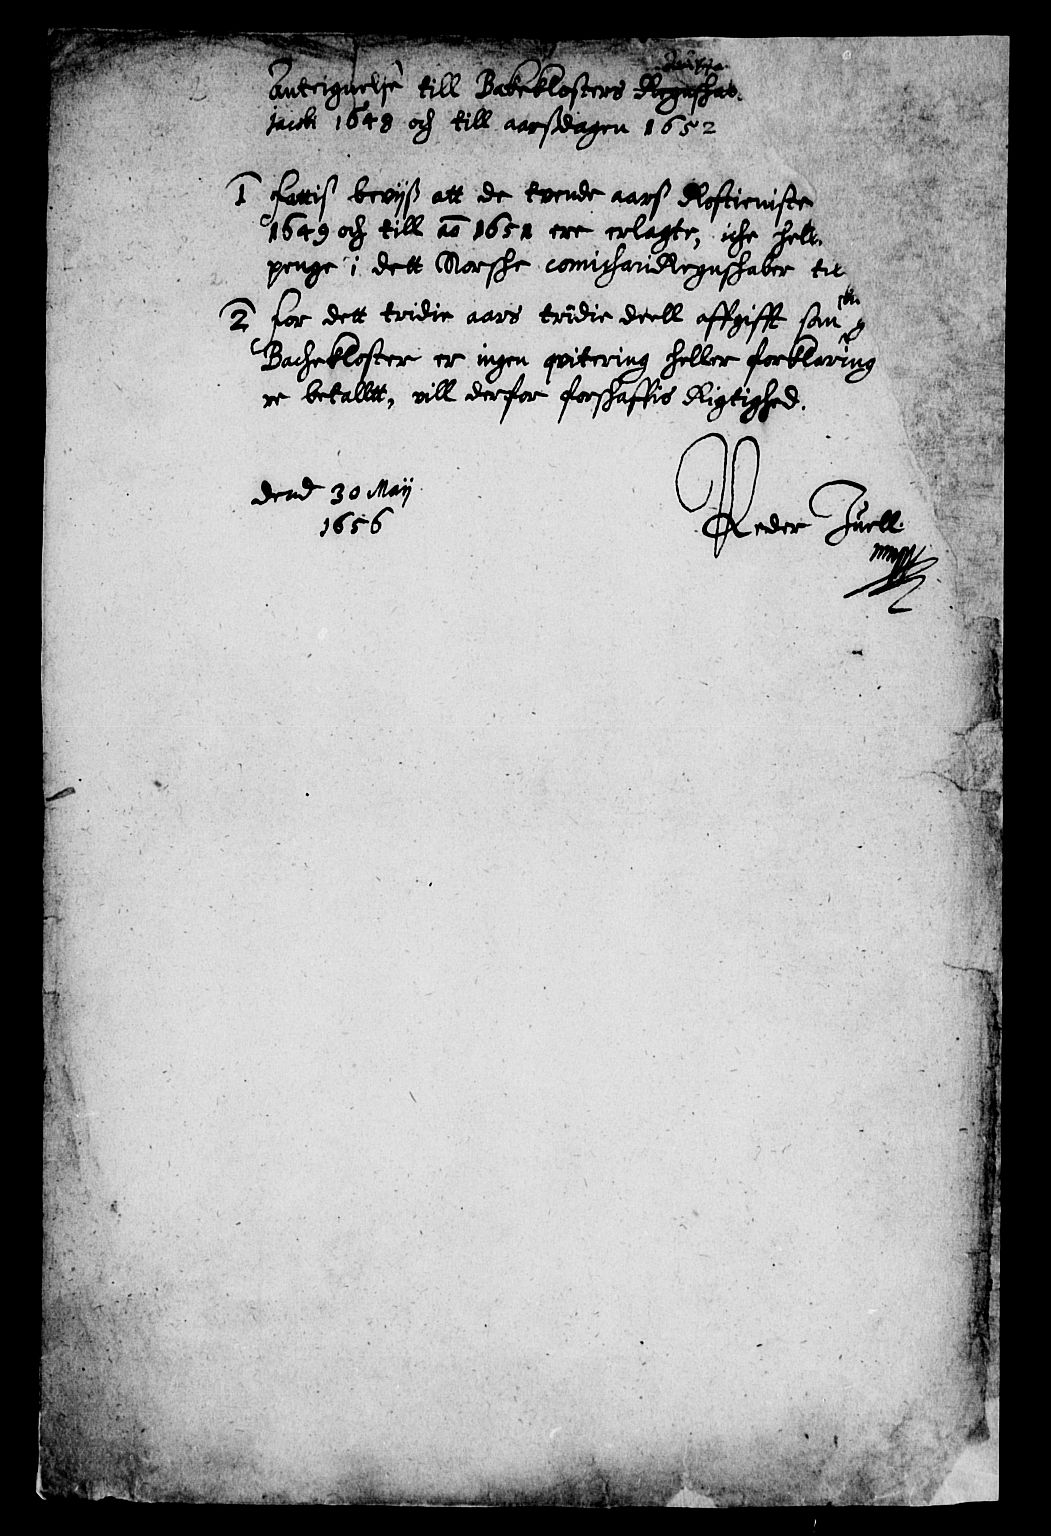 Anteignelse till Bakeklosters Regnschab
jacobi 1648 och till aarsdagen 1652
1 fattis beviiß att de tvende aars Rostieniste
1649 och till ao 1651 ere erlagte, iche hell
penge i dett Norsche comissari Regnschaber til
2 for dett tridie aars tridie deell affgifft som
Bachekloster er ingen qvitering heller forklaring
re betalltt, vill derfor forschaffis Rigtighed.
dend 30 Maij
1656
Peder Juell
mpp